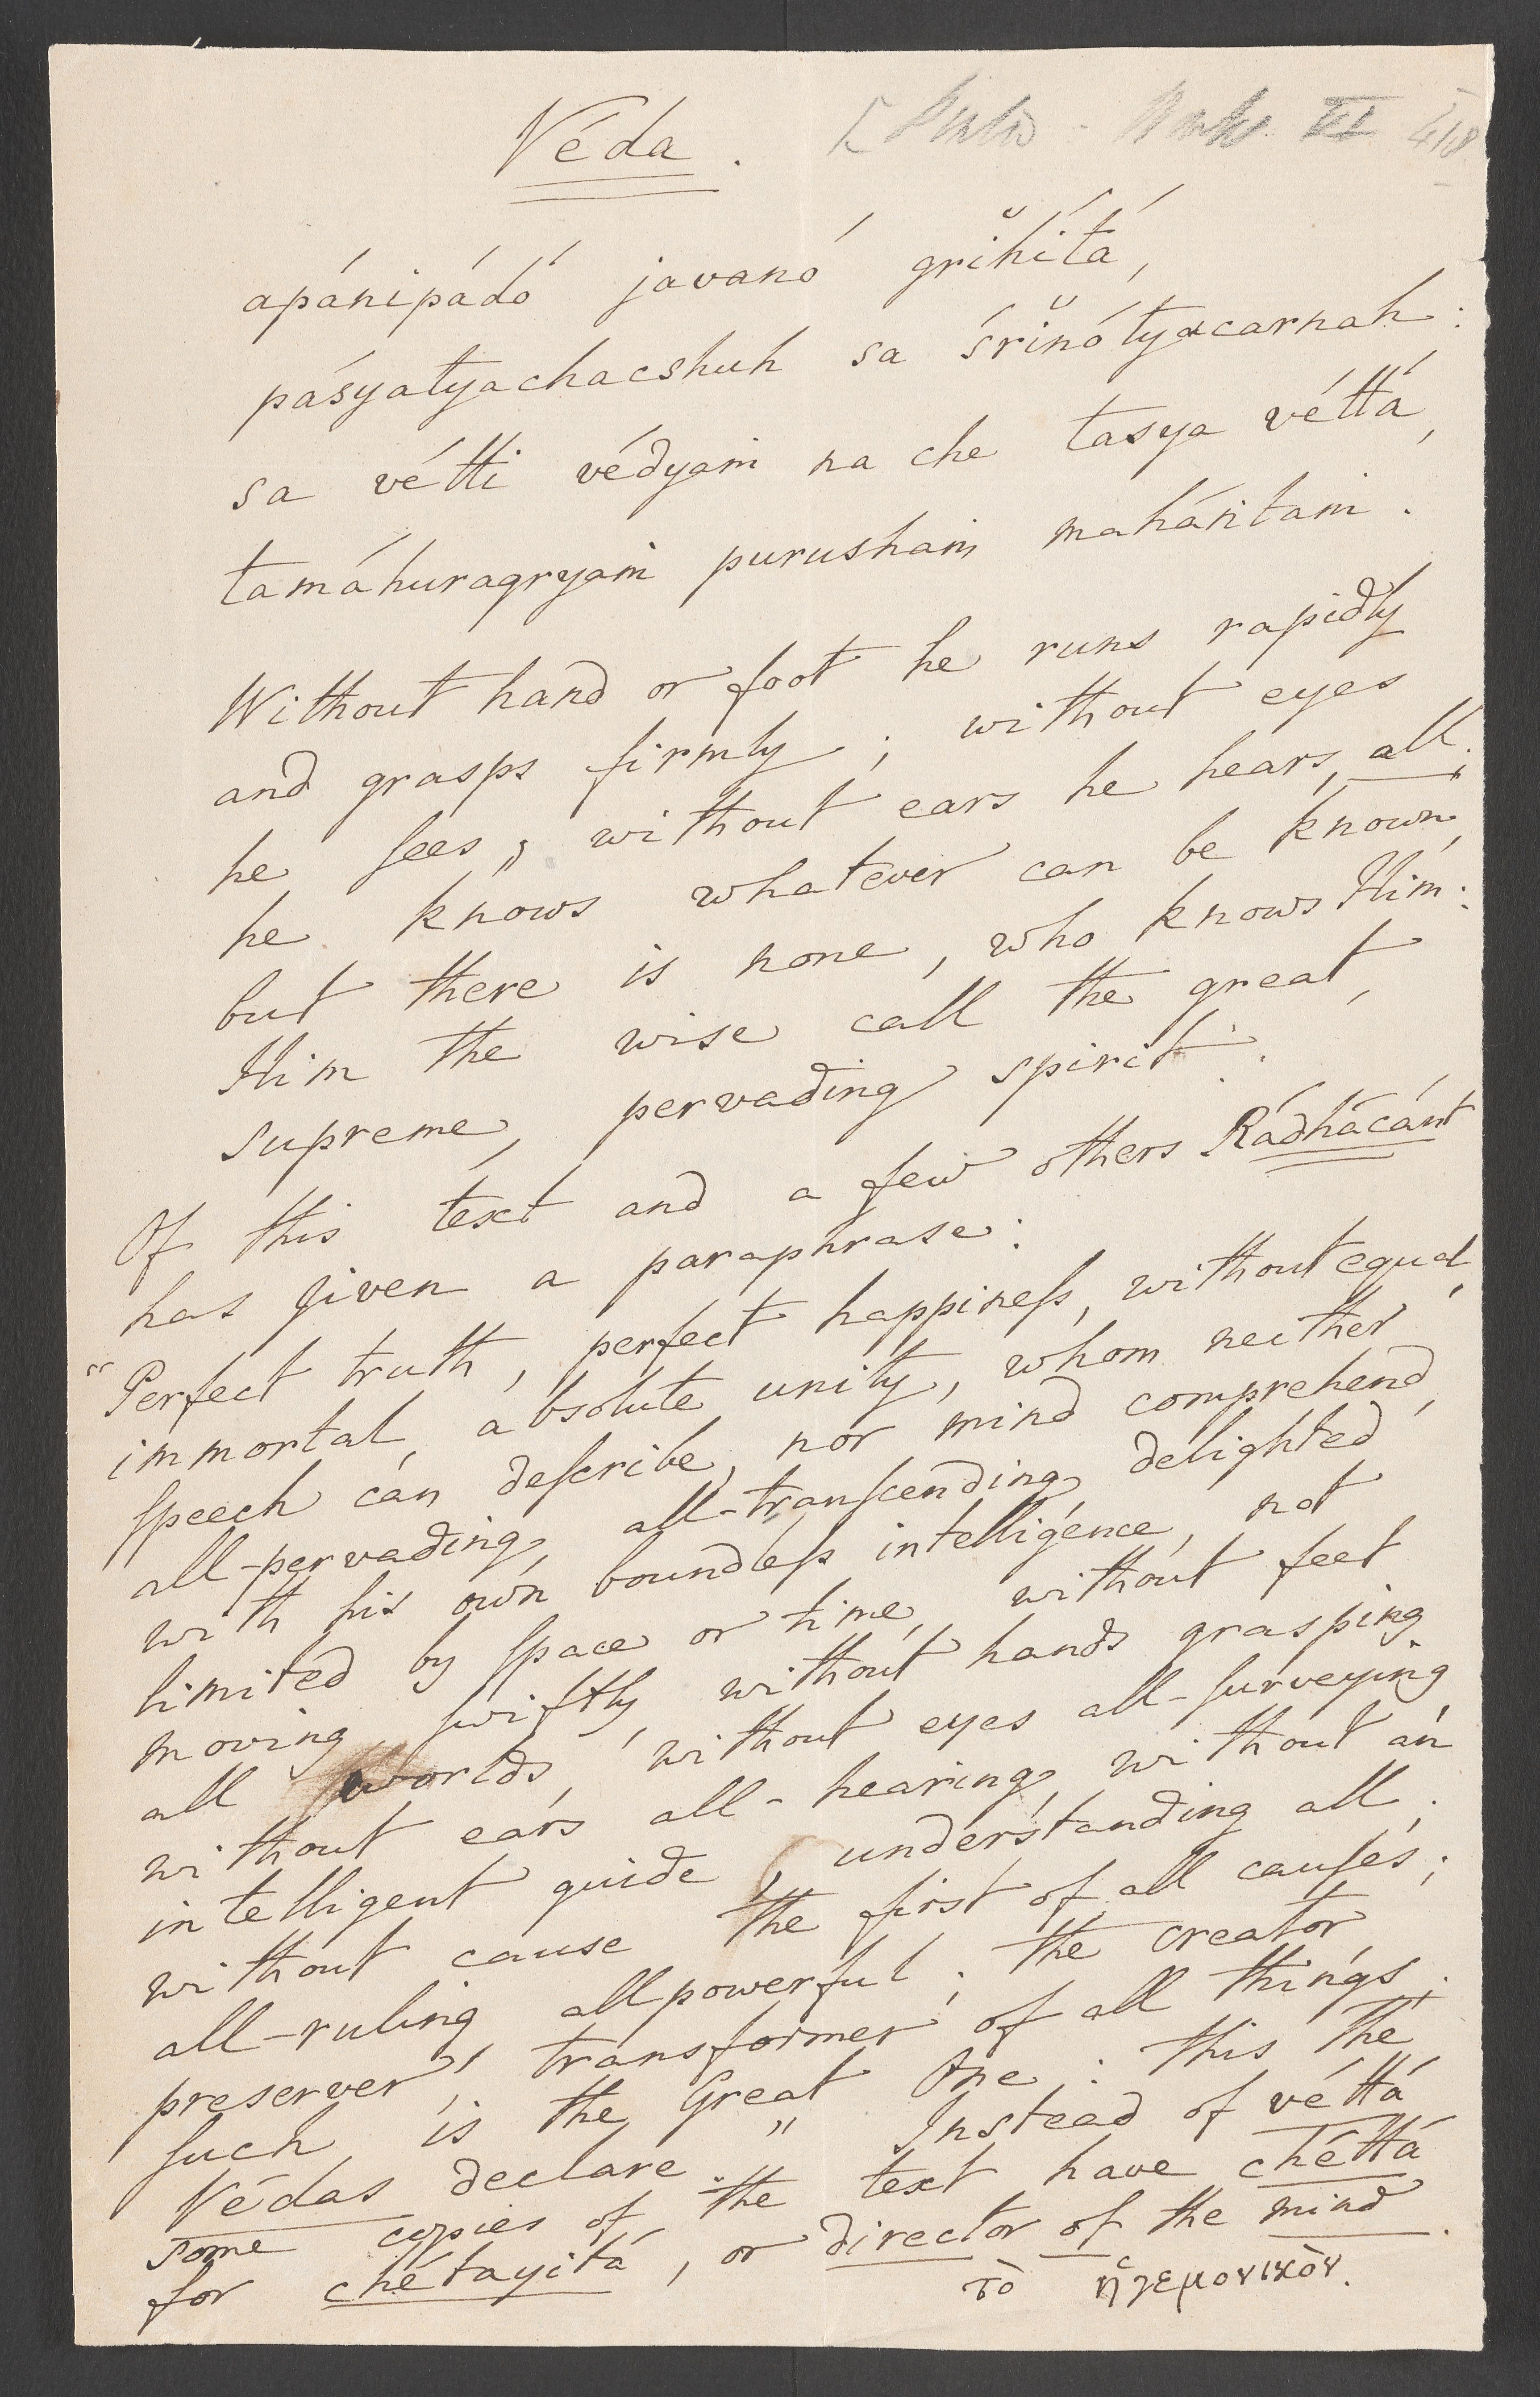 Véda.
apánipádó javanó grĭhítá,
pásyatyachacshuh sa śrĭnótyacarnah:
sa vétti védyam na che tasya véttá,
tamáhuragryam purusham mahántam.
Without hand or foot he runs rapidly
and grasps firmly; without eyes
he sees, without ears he hears all;
he knows whatever can be known,
but there is none, who knows Him:
Him the wise call the great,
supreme, pervading spirit.
Of this text and a few others Rádhácánt
has given a paraphrase:
"Perfect truth, perfect happineſs, without equal,
immortal, absolute unity, whom neither
ſpeech can deſcribe, nor mind comprehend,
all-pervading, all-tranſcending, delighted
with his own boundleſs intelligence, not
limited by ſpace or time, without feet
moving ſwiftly, without hands grasping
all worlds, without eyes all-ſurveying
without ears all-hearing, without an
intelligent guide, understanding all;
without cause the first of all cauſes;
all-ruling, allpowerful; the creator,
preserver, transformer of all things;
ſuch is the Great One: this the
Védas declare." Instead of véttá
some copies of the text have chéttá
for chétayitá, or director of the mind.
τὸ ἡγεμονικὸν.